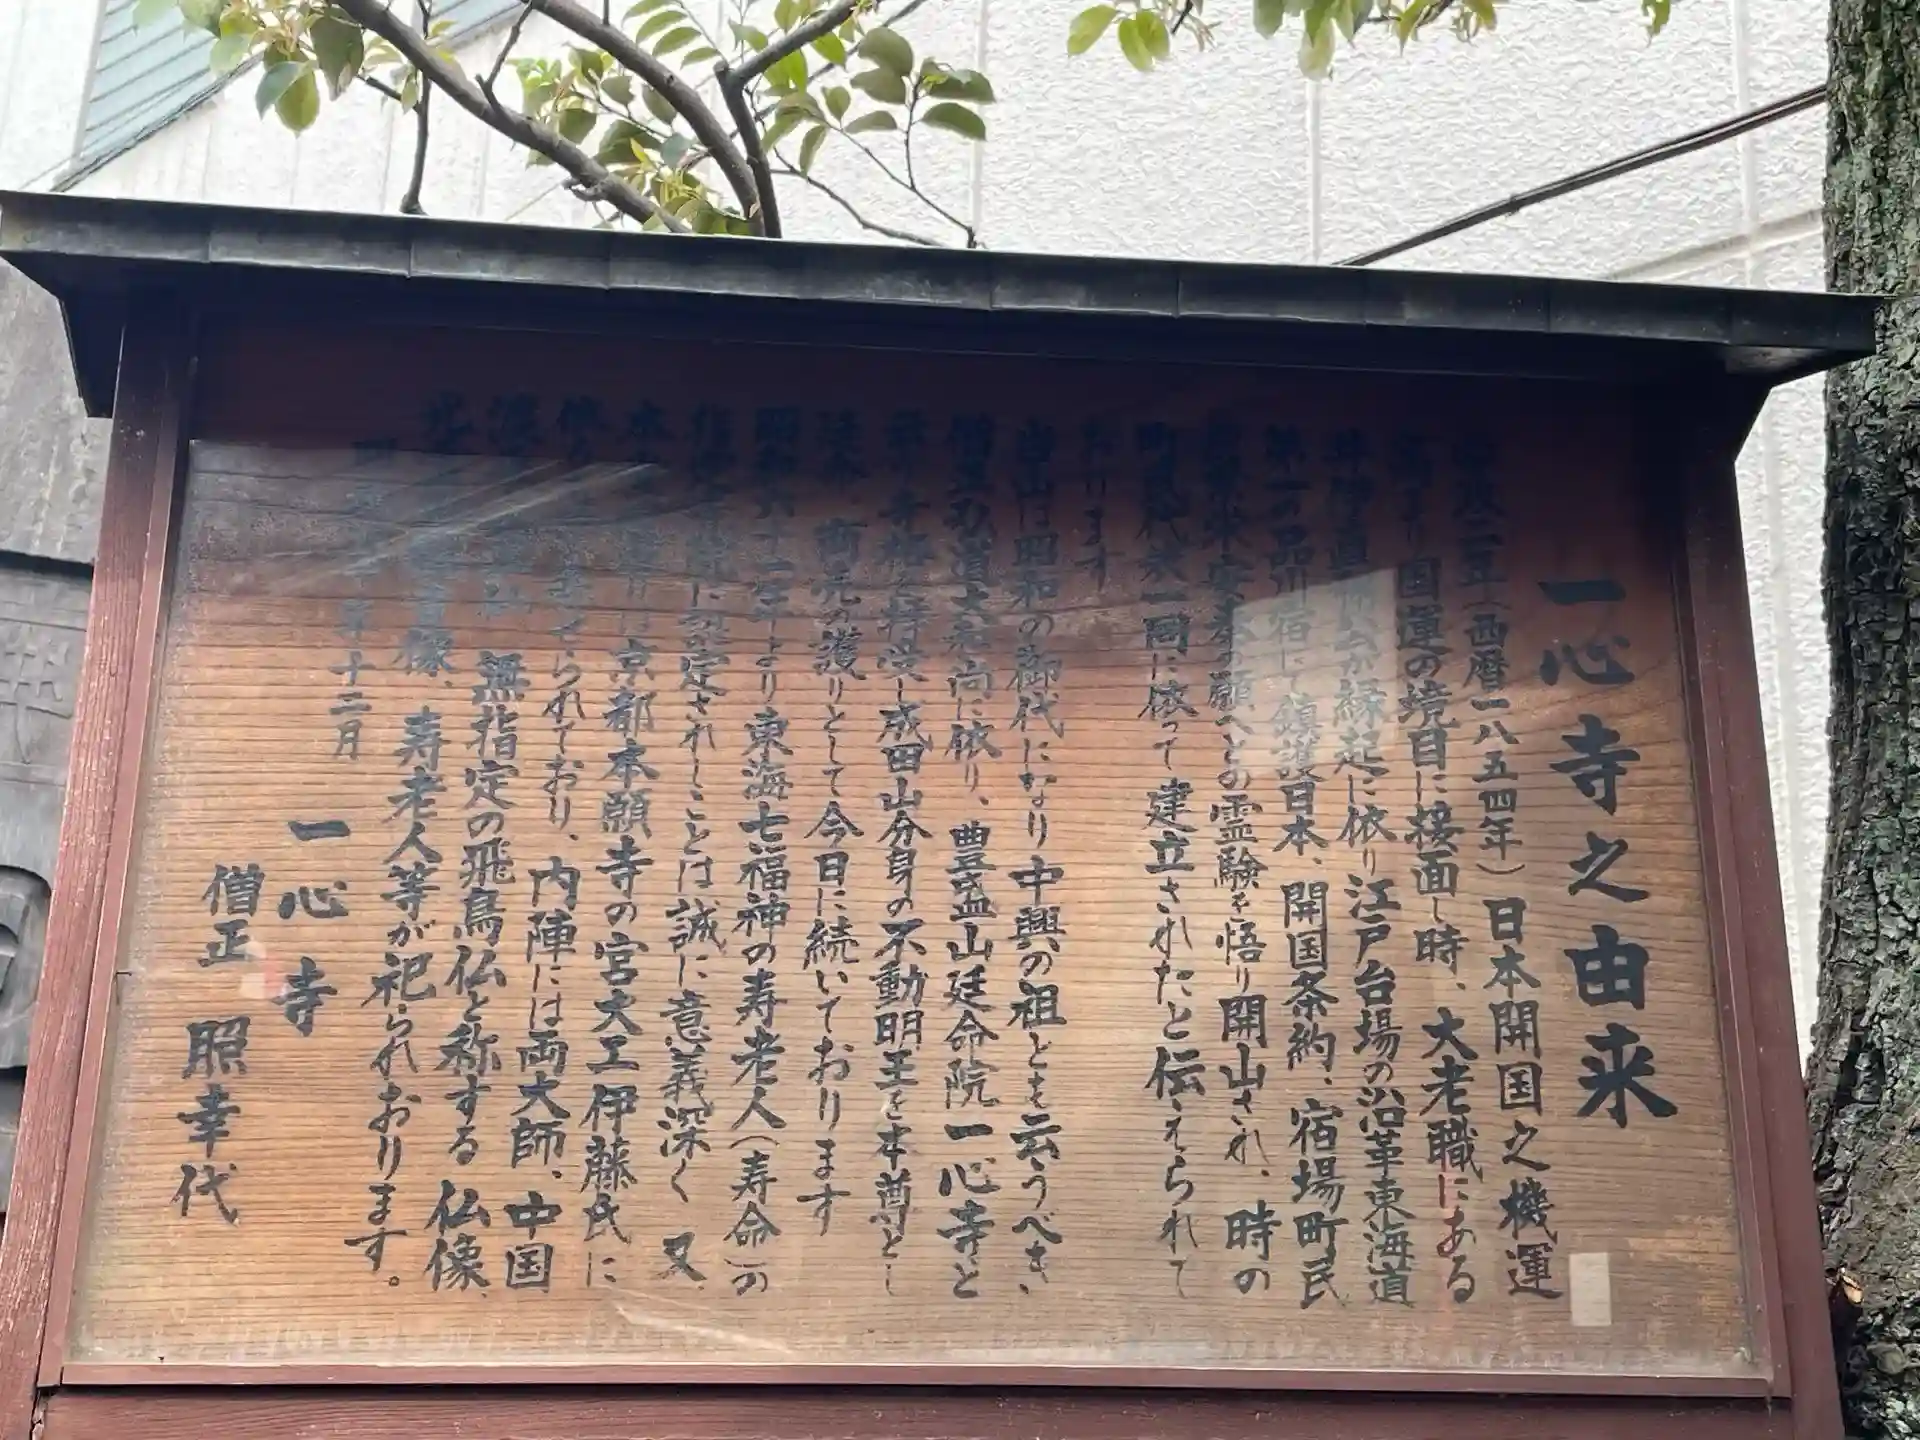 一心寺之由来
安政二年（西暦一八五四年）日本開国之機運
国運の境目に接面し時、大老職にある
井伊直弼公が縁起に依り江戸台場の沿革東海道
第一の品川宿にて鎮護日本、開国条約、宿場町民
安泰を願へとの霊験を悟り開山され、時の
町民代表一同に依って建立されたと伝えられて
おります
当山は昭和の御代になり中興の祖とも云うべき、
弘道大和尚に依り、豊盛山延命院一心寺と
寺格を拝受し成田山分身の不動明王を本尊とし
商売の護りとして今日に続いております
昭和六十二年より東海七福神の寿老人（寿命）の
に認定されしことは誠に意義深く又、
は京都本願寺の宮大工伊藤氏に
られており、内陣には両大師、中国
無指定の飛鳥仏と称する仏像、
像、寿老人等が祀られおります。
十二月
一心寺
僧正 照幸代